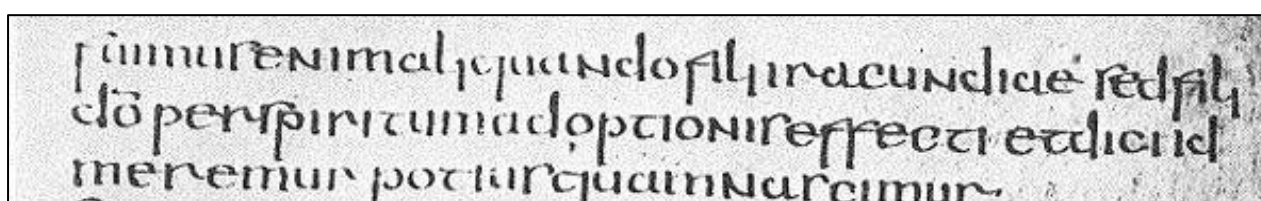 fuimus enim aliquando filii iracundiae sed filii
dō per spiritum adoptionis effecti et dici id
meremur potius quam nascimur